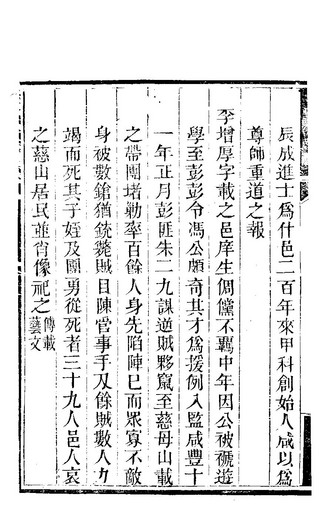 辰成進士爲什邑二百年來甲科創始人咸以爲
尊師重道之報
李增厚字載之邑庠生倜儻不羈中年因公被褫遊
學至彭彭令馮公頗奇其才爲援例入監咸豐十
一年正月彭匪朱二九謀逆賊夥竄至慈母山載
之帶團堵勒率百餘人身先陷陣巳而眾寡不敵
身被數鎗猶銃斃賊目陳管事手刃餘賊數人力
竭而死其子姪及團勇從死者三十九人邑人哀
之慈山居民並肖像祀之傳載藝文